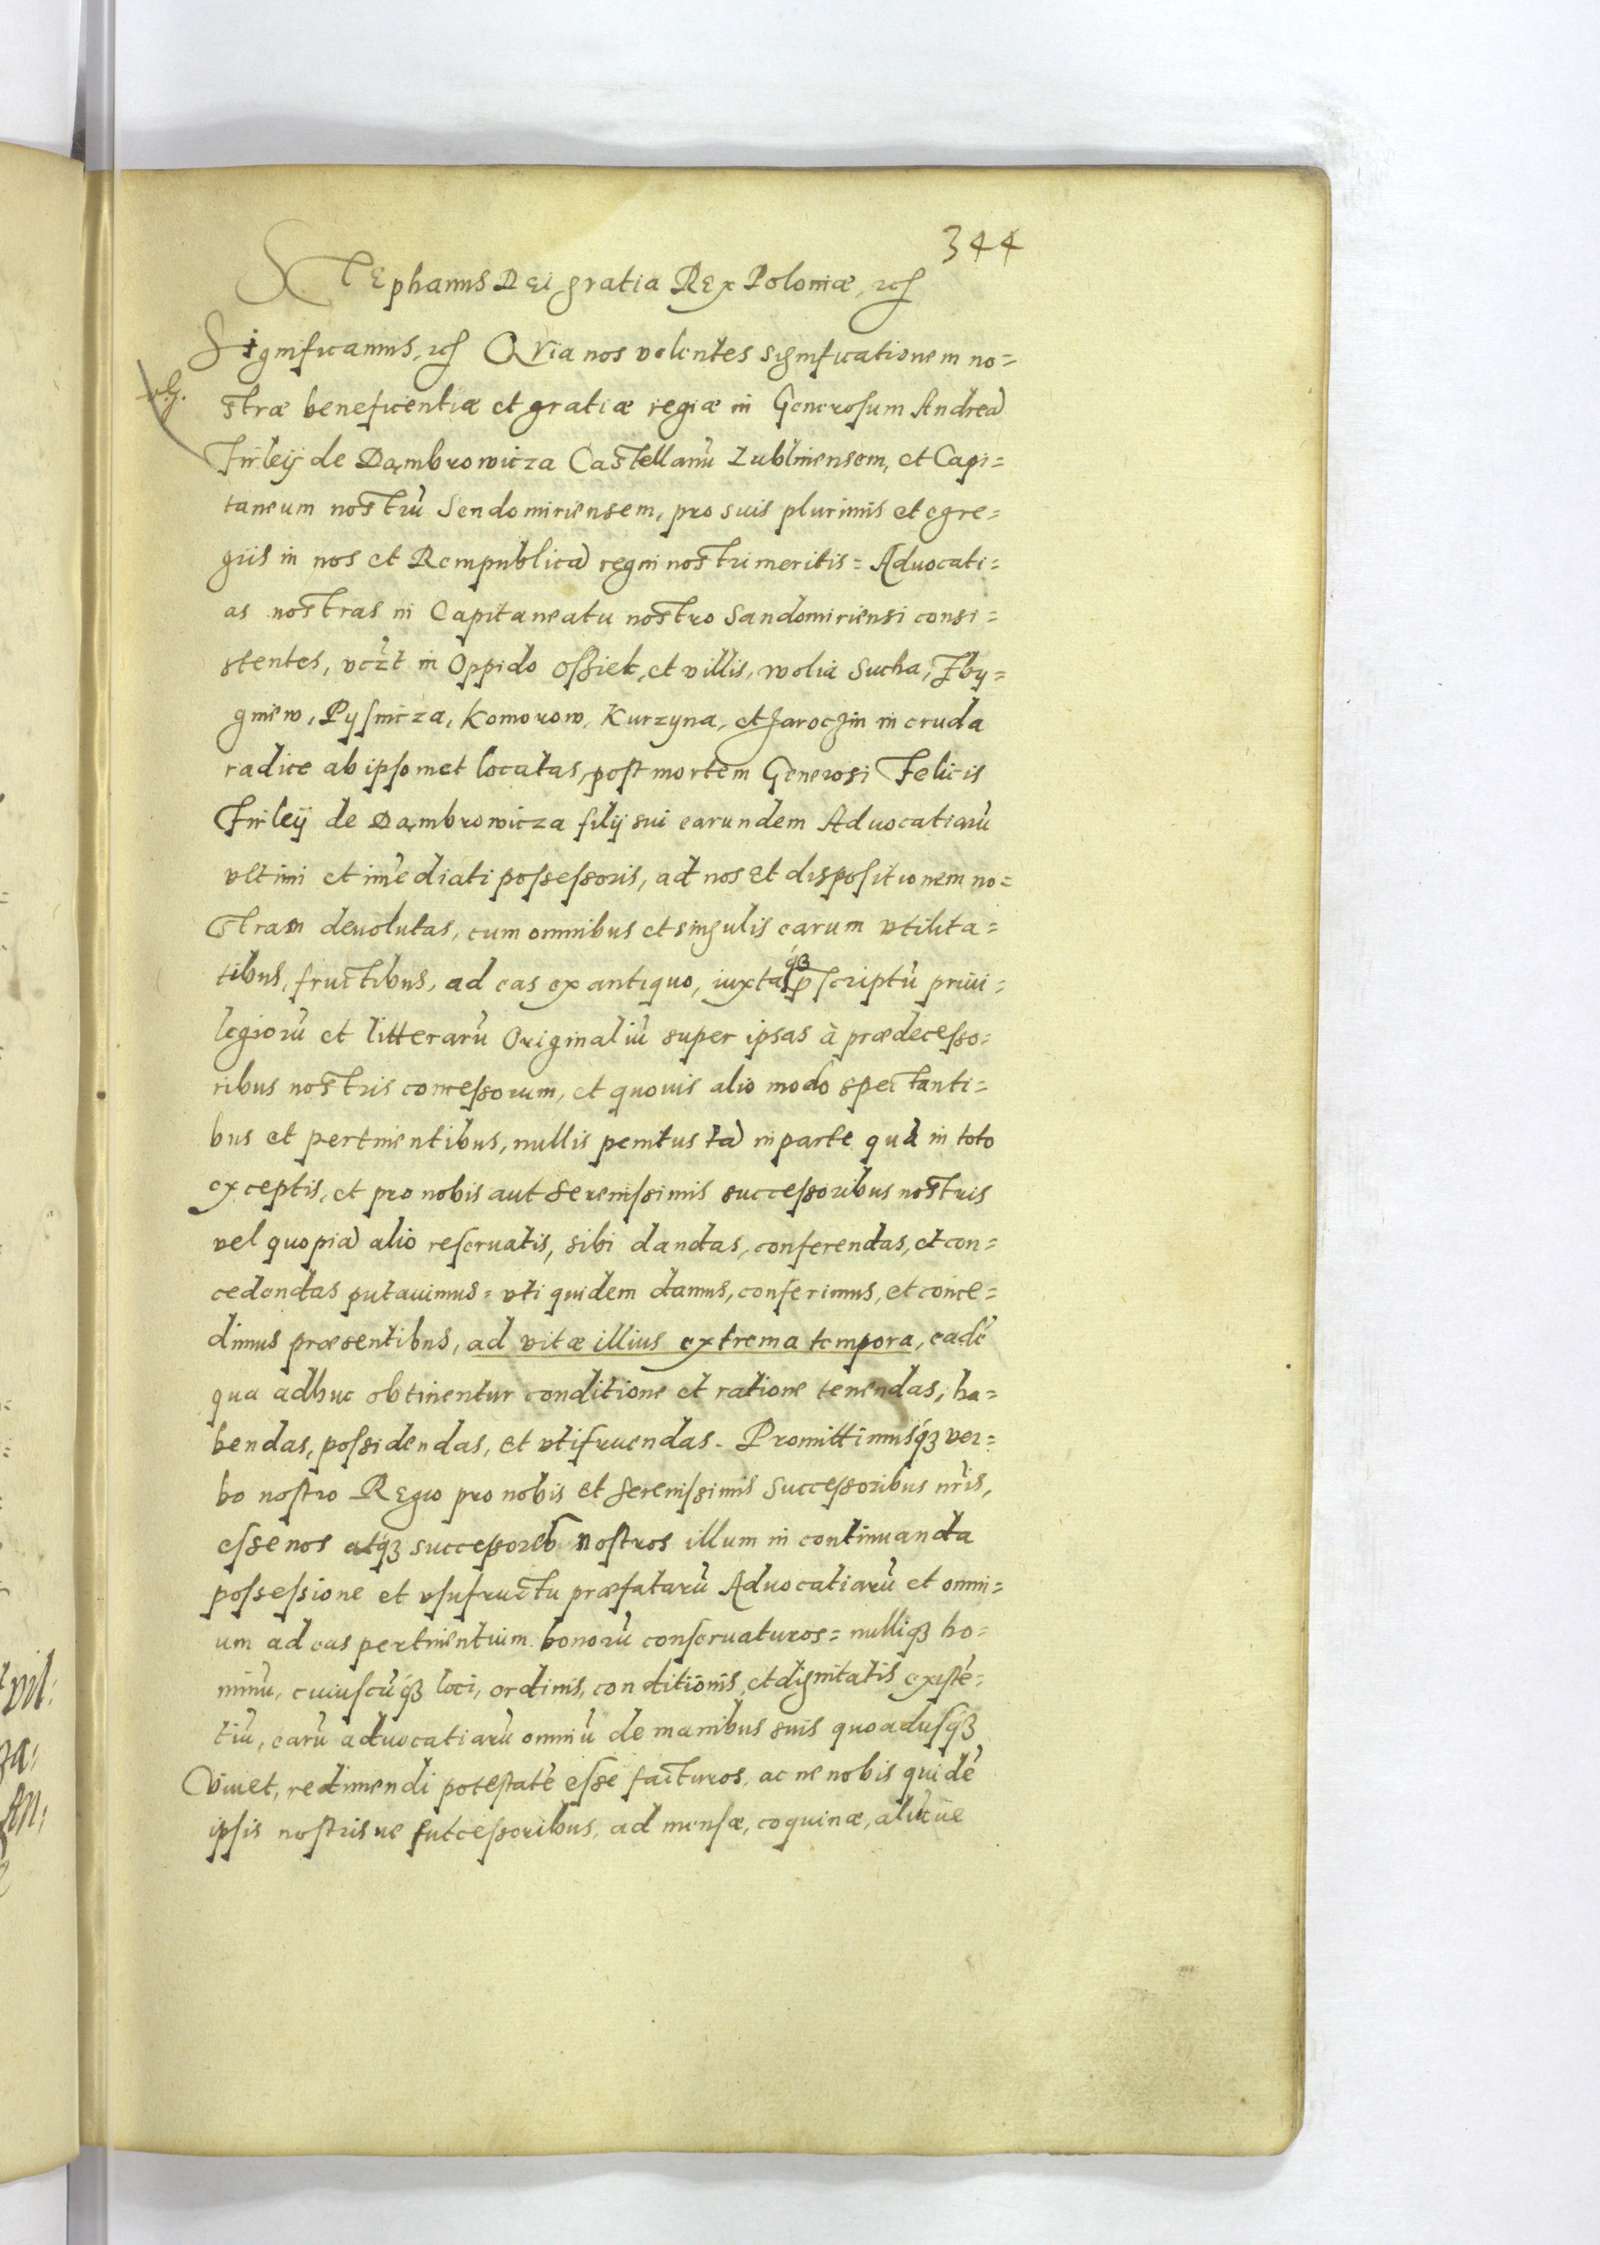 344
STEphanus DEi gratia REx Poloniæ, etc
Significamus, etc QVia nos volentes significationem no=
stræ beneficentiæ et gratiæ regiæ in Generosum Andreā
Firleÿ de Dąmbrowicza Castellanū Lublinensem, et Capi=
taneum nostrū Sendomiriensem, pro suis plurimis et egre=
giis in nos et Rempublicā regni nostri meritis= Aduocati=
as nostras in Capitaneatu nostro Sandomiriensi consi=
stentes, vczt in Oppido Ossiek, et villis, wolia Sucha, Zby=
gniew, Pysnicza, Komorow, Kurzyna, et Jaroczin in cruda
radice ab ipsomet locatas, post mortem Generosi Felicis
Firleÿ de Dąmbrowicza filij sui earundem Aduocatiarū
vltimi et imēdiati possessoris, ad nos et dispositionem no=
stram deuolutas, cum omnibus et singulis earum vtilita=
tibus, fructibus, ad eas ex antiquo, iuxtaqꝫ p̄scriptū priui=
legiorū et litterarū Originaliū super ipsas à prædecesso=
ribus nostris concessorum, et quouis alio modo spectanti=
bus et pertinentibus, nullis penitus tā in parte quā in toto
exceptis, et pro nobis aut Serenissimis successoribus nostris
vel quopiā alio reseruatis, sibi dandas, conferendas, et con=
cedendas putauimus= vti quidem damus, conferimus, et conce=
dimus præsentibus, ad vitæ illius extrema tempora, eadē
qua adhuc obtinentur conditione et ratione tenendas, ha=
bendas, possidendas, et vtifruendas. Promittimusqꝫ ver=
bo nostro REgio pro nobis et Serenissimis Successoribus nr̄is,
esse nos atqꝫ successores nostros illum in continuanda
possessione et vsufructu præfatarū Aduocatiarū et omni=
um ad eas pertinentium bonorū conseruaturos= nulliqꝫ ho=
minū, cuiuscūqꝫ loci, ordinis, conditionis, et dignitatis existē=
tiū, earū aduocatiarū omniū de manibus suis quoadusqꝫ
Viuet, redimendi potestatē esse facturos, ac ne nobis quidē
ipsis nostrisue successoribus, ad mensæ, coquinæ,